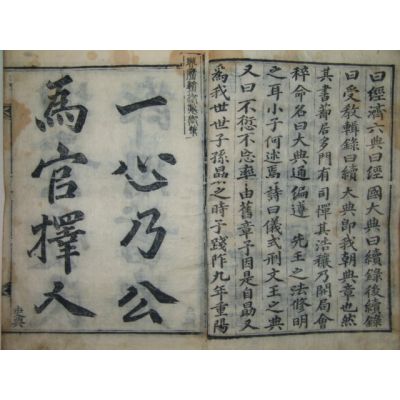 曰經濟六典曰經國大典曰續錄後續錄
曰受敎輯錄曰續大典卽我朝典章也然
其書蔀居多門有司憚其浩穰乃開局會
稡命名曰大典通編遵 先王之法修明
之耳小子何述焉詩曰儀式刑文王之典
又曰不愆不忘率由舊章予因是自勗又
爲我世世子孫勗之時予踐阼九年重陽
一心乃公
爲官擇人